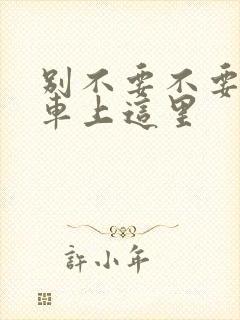 別不要不要
車上這里
許小年